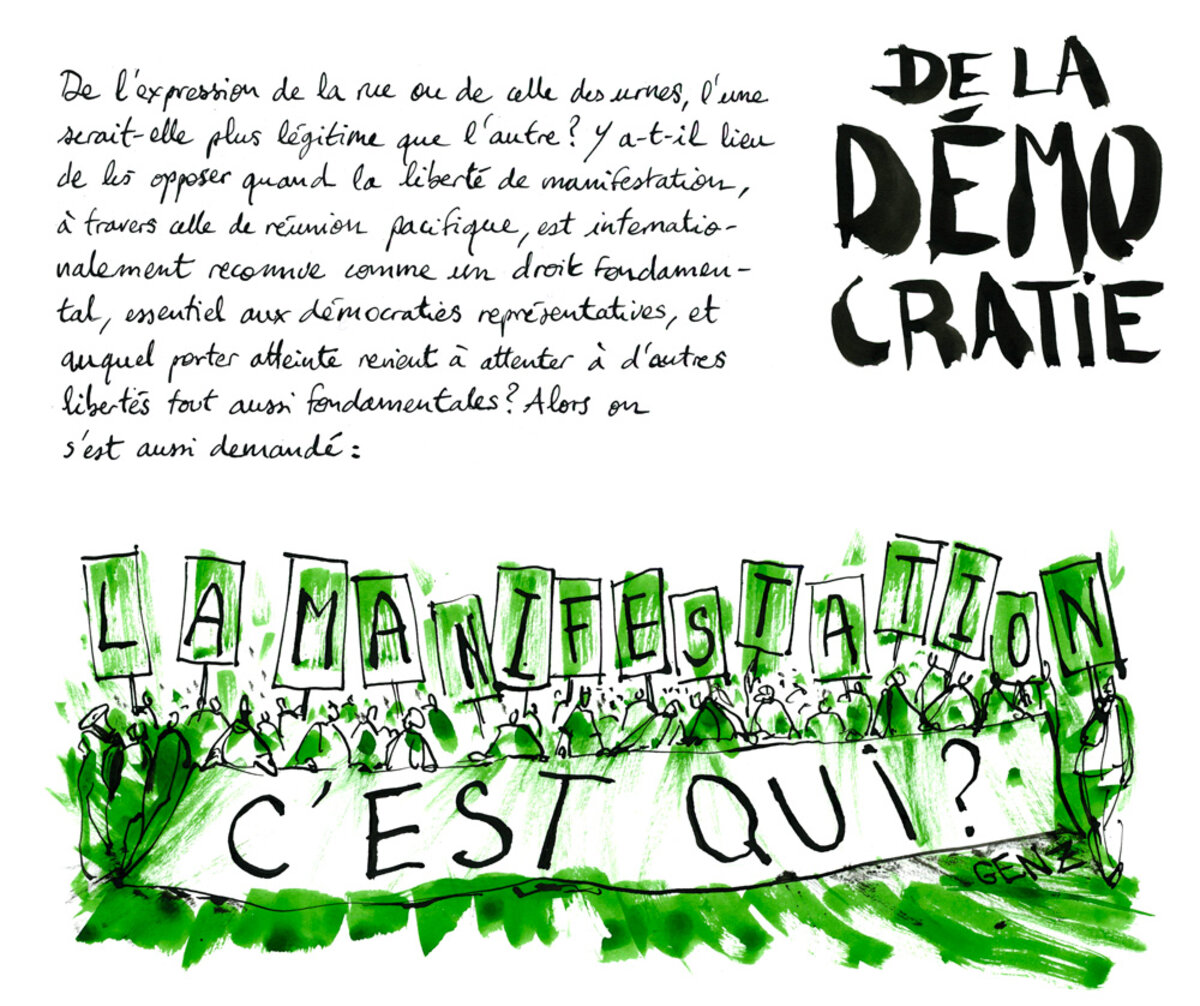 De l'expression de la rue ou de celle des urnes, l'une
serait-elle plus légitime que l'autre? Y a-t-il lieu
de les opposer quand la liberté de manifestation,
à travers celle de réunion pacifique, est internatio-
nalement reconnue comme un droit fondamen-
tal, essentiel aux démocraties représentatives, et
auquel porter atteinte revient à attenter à d'autres
libertés tout aussi fondamentales? Alors on
s'est aussi demandé :
DE LA
DÉMO
CRATIE
LA MANIFESTATION
C'EST QUI?
GENZ